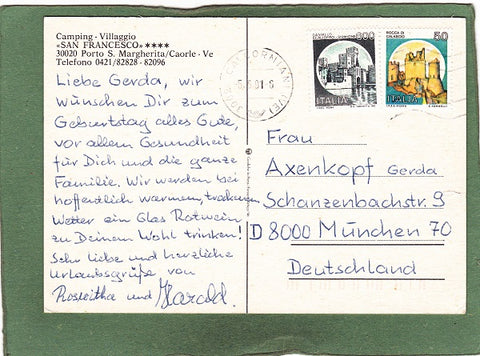 Camping - Villaggio
«SAN FRANCESCO» ★★★★
30020 Porto S. Margherita/Caorle - Ve
Telefono 0421/82828 - 82096
Liebe Gerda, wir
wünschen Dir zum
Geburtstag alles Gute,
vor allem Gesundheit
für Dich und die ganze
Familie. Wir werden bei
hoffentlich warmem, trockenem
Wetter ein Glas Rotwein
zu Deinem Wohl trinken!
Sehr liebe und herzliche
Urlaubsgrüße von
Roswitha und Harald.
ITALIA
50
ROCCA DI
CALASCIO
ITALIA
Frau
Axenkopf Gerda
Schanzenbachstr. 9
D 8000 München 70
Deutschland